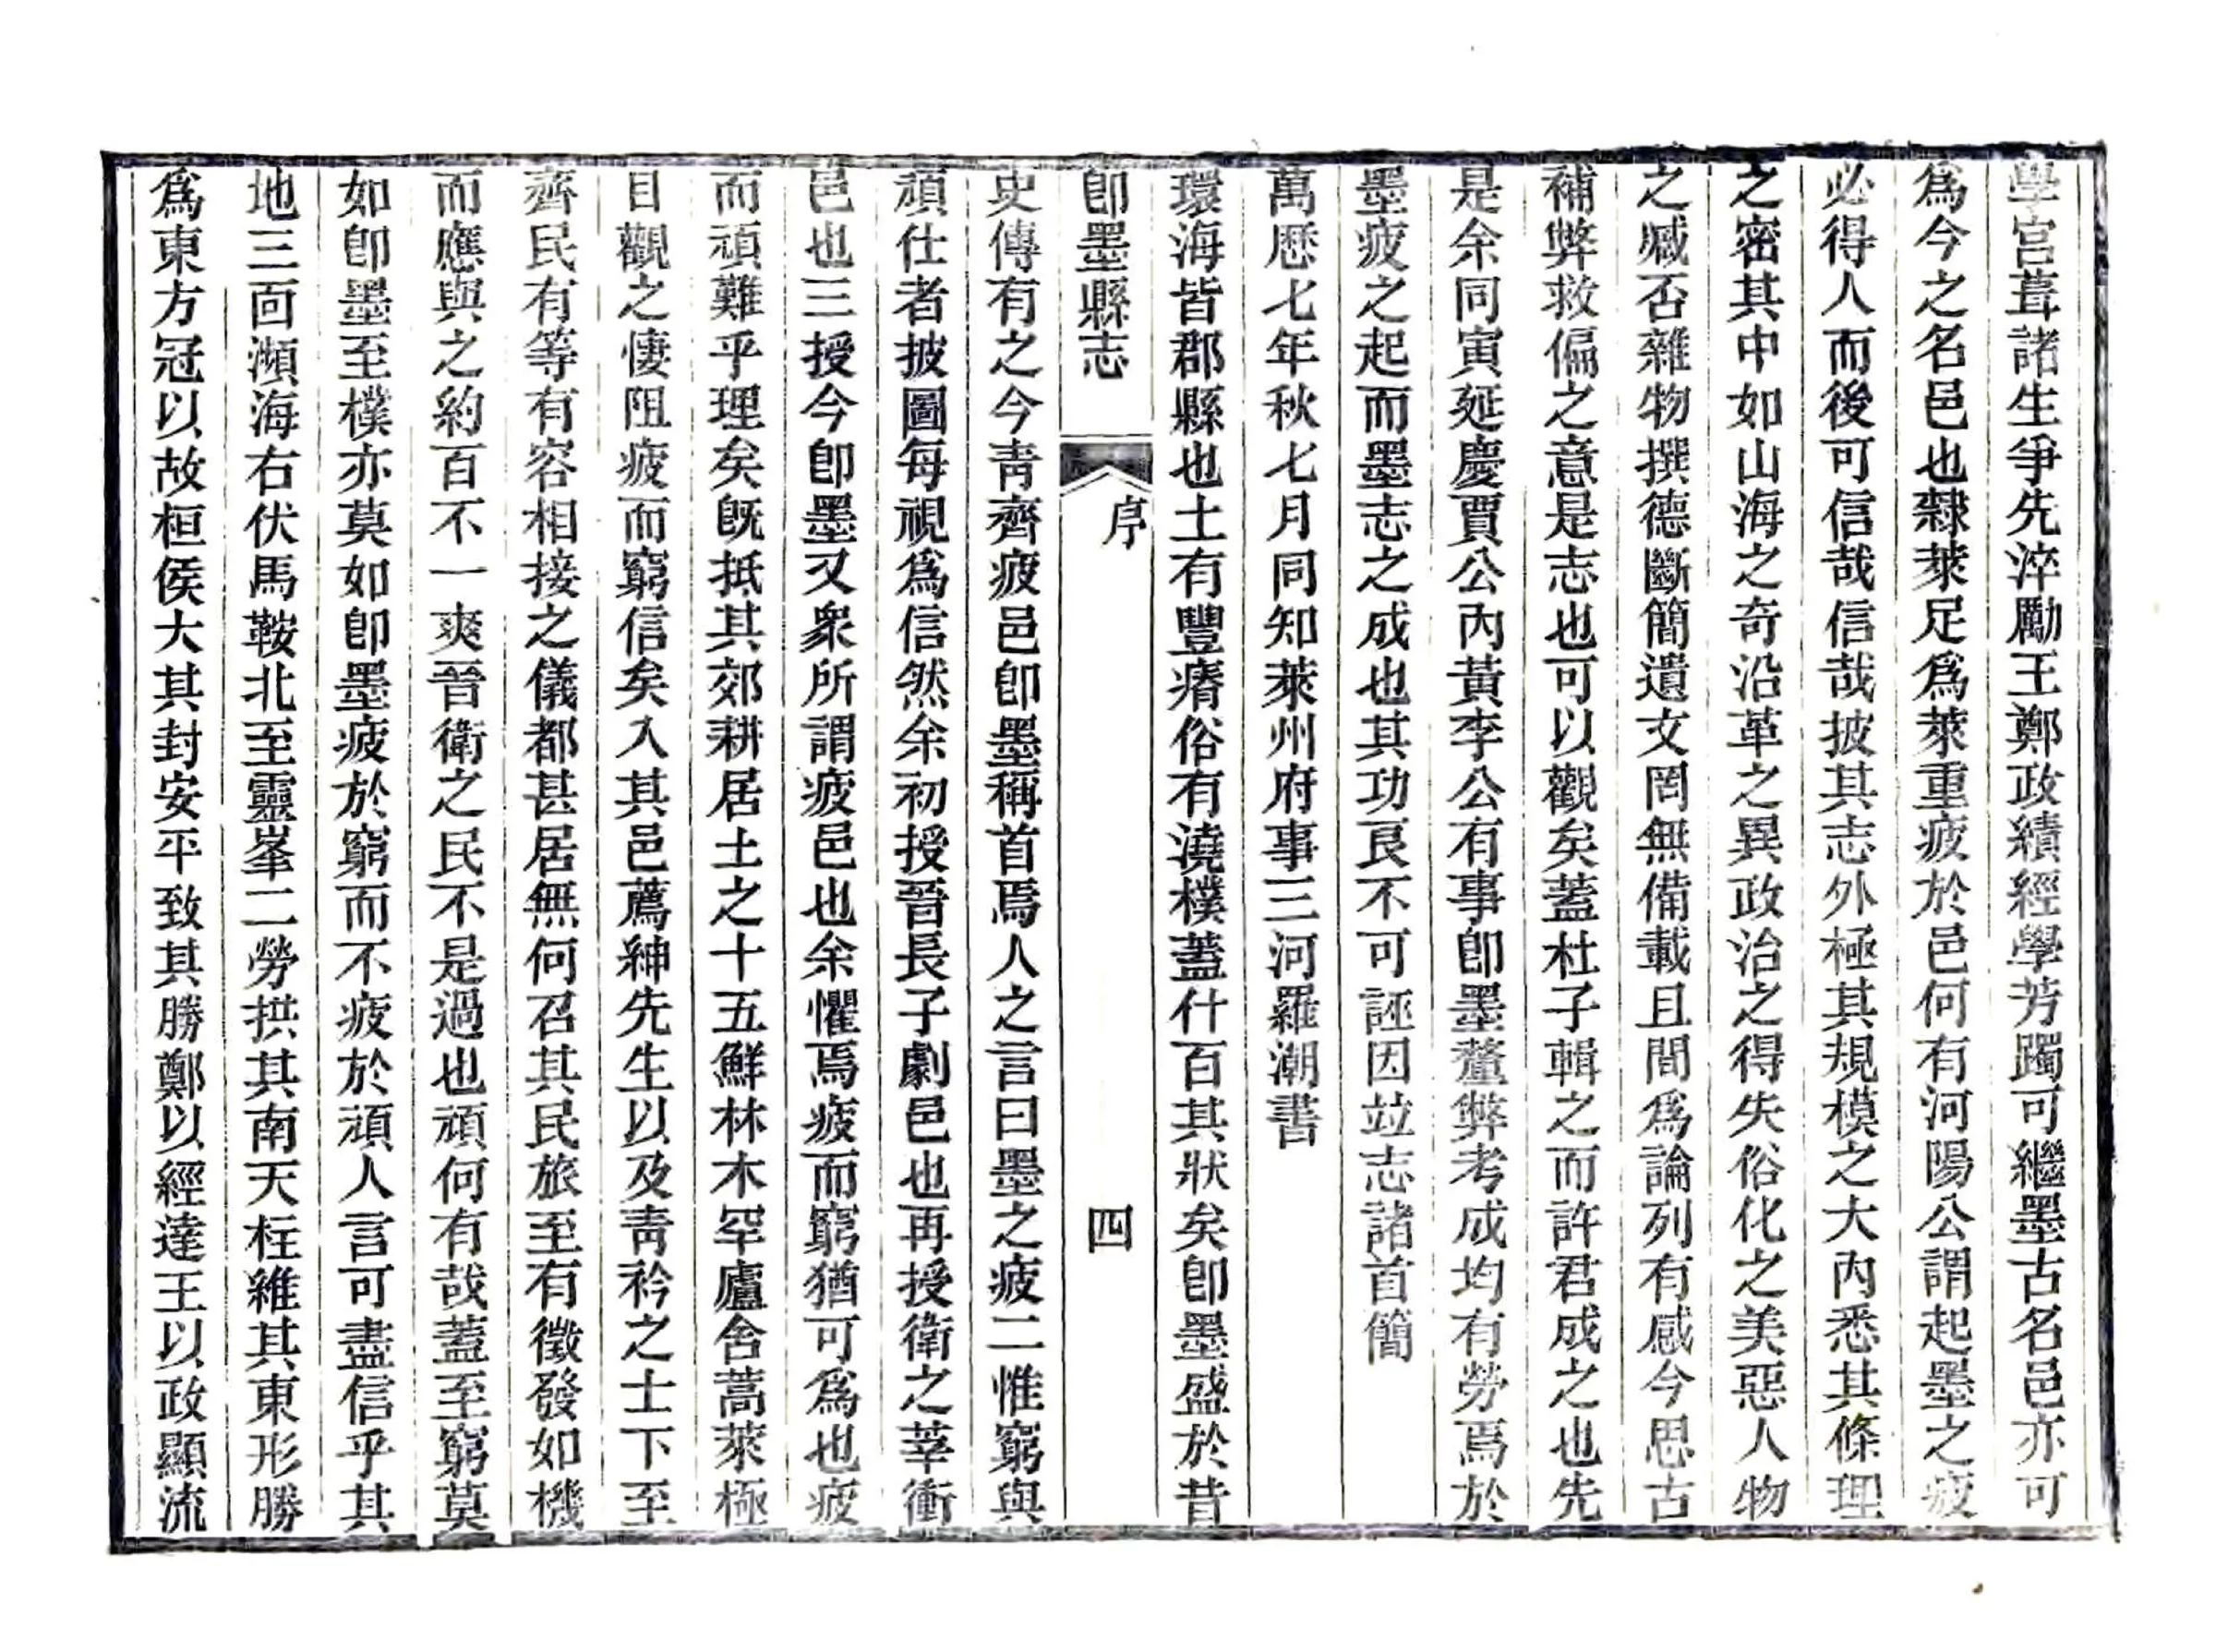 學宫葺諸生爭先淬勵王鄭政績經學芳躅可繼墨古名邑亦可
爲今之名邑也隸萊足爲萊重疲於邑何有河陽公謂起墨之疲
必得人而後可信哉信哉披其志外極其規模之大內悉其條理
之密其中如山海之奇沿革之異政治之得失俗化之美惡人物
之臧否雜物撰德斷簡遺文罔無備載且間爲論列有感今思古
補弊救偏之意是志也可以觀矣蓋杜子輯之而許君成之也先
是余同寅延慶賈公內黃李公有事卽墨釐弊考成均有勞焉於
墨疲之起而墨志之成也其功良不可誣因竝志諸首簡
萬歷七年秋七月同知萊州府事三河羅潮書
環海皆郡縣也土有豐瘠俗有澆樸蓋什百其狀矣卽墨盛於昔
卽墨縣志
序
四
史傳有之今青齊疲邑卽墨稱首焉人之言曰墨之疲二惟窮與
頑仕者披圖每視爲信然余初授晉長子劇邑也再授衛之莘衝
邑也三授今卽墨又衆所謂疲邑也余懼焉疲而窮猶可爲也疲
而頑難乎理矣既抵其郊耕居土之十五鮮林木罕廬舍蒿萊極
目觀之悽阻疲而窮信矣入其邑薦紳先生以及青衿之士下至
齊民有等有容相接之儀都甚居無何召其民旅至有徵發如機
而應與之約百不一爽晉衛之民不是過也頑何有哉蓋至窮莫
如卽墨至樸亦莫如卽墨疲於窮而不疲於頑人言可盡信乎其
地三面瀕海右伏馬鞍北至靈峯二勞拱其南天柱維其東形勝
爲東方冠以故桓侯大其封安平致其勝鄭以經達王以政顯流